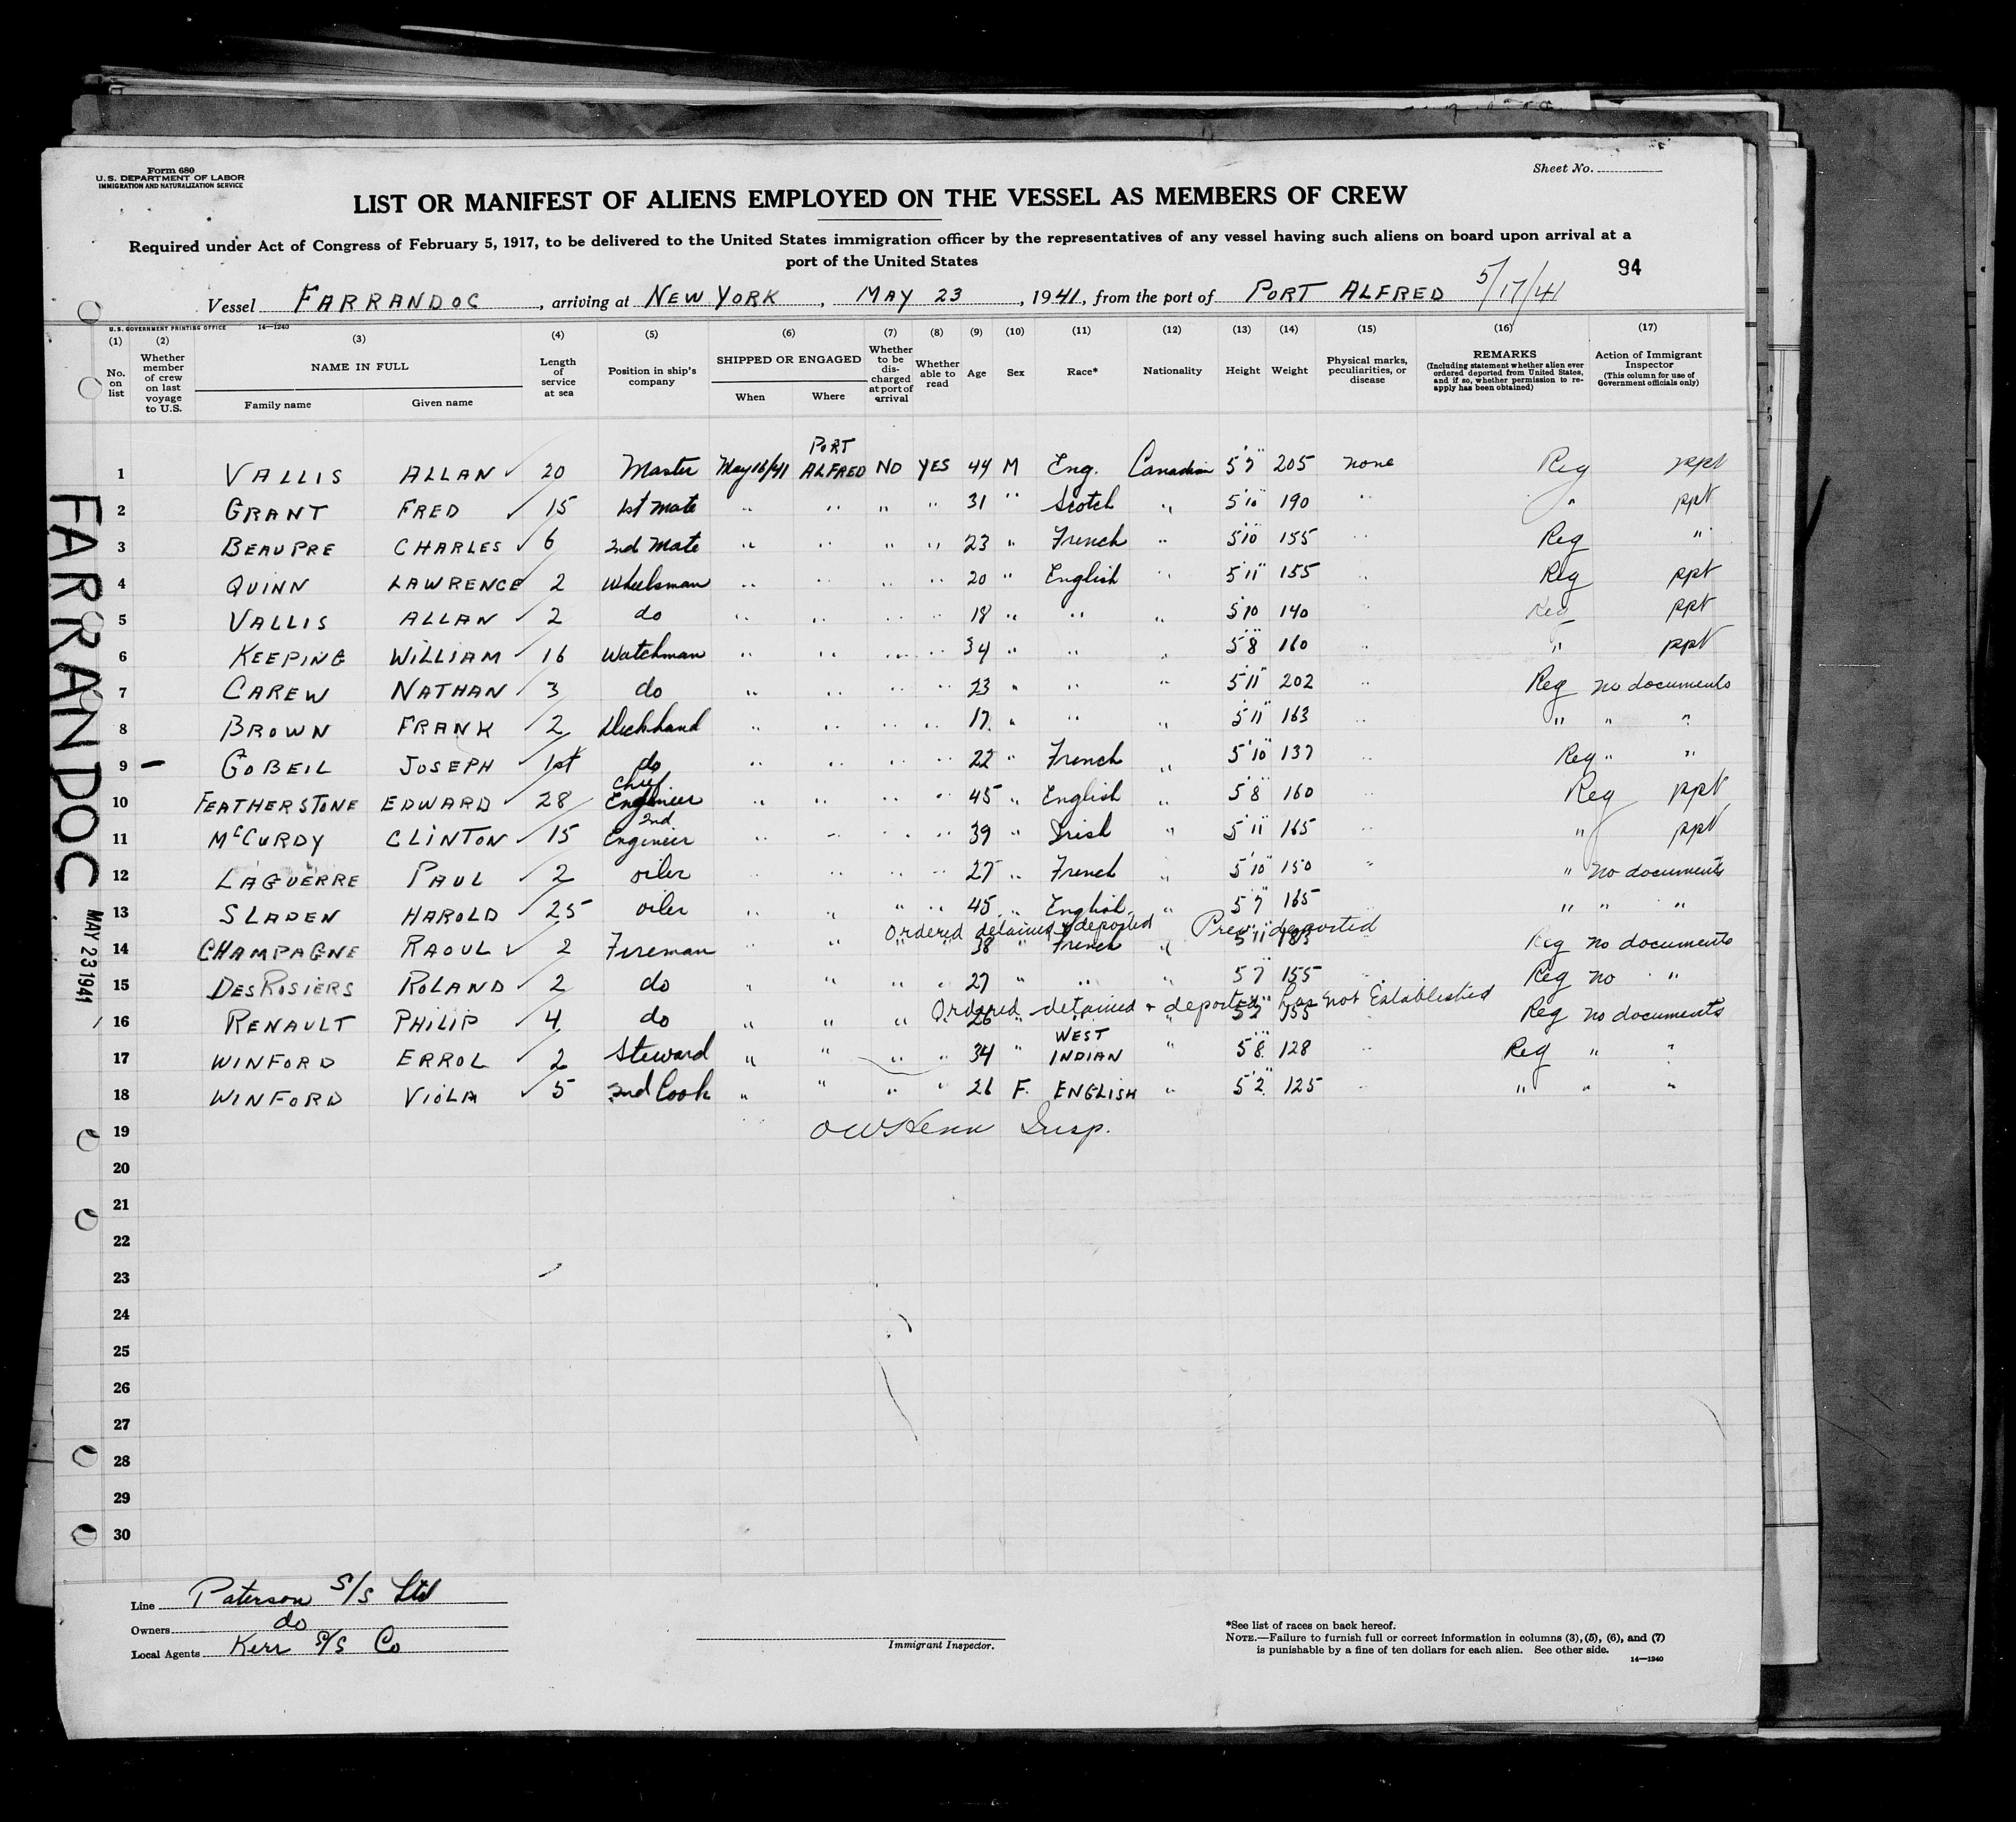 Form 680
U.S. DEPARTMENT OF LABOR
IMMIGRATION AND NATURALIZATION SERVICE
Sheet No.
LIST OR MANIFEST OF ALIENS EMPLOYED ON THE VESSEL AS MEMBERS OF CREW
Required under Act of Congress of February 5, 1917, to be delivered to the United States immigration officer by the representatives of any vessel having such aliens on board upon arrival at a
port of the United States
94
Vessel FARRANDOC, arriving at NEW YORK, MAY 23, 1941, from the port of PORT ALFRED 5/17/41
U.S. GOVERNMENT PRINTING OFFICE 14—1240
(1) (2) (3) (4) (5) (6) (7) (8) (9) (10) (11) (12) (13) (14) (15) (16) (17)
No. on list
Whether member of crew on last voyage to U.S.
NAME IN FULL
Family name Given name
Length of service at sea
Position in ship's company
SHIPPED OR ENGAGED
When Where
Whether to be discharged at port of arrival
Whether able to read
Age Sex Race* Nationality Height Weight
Physical marks, peculiarities, or disease
REMARKS
(Including statement whether alien ever ordered deported from United States, and if so, whether permission to reapply has been obtained)
Action of Immigrant Inspector
(This column for use of Government officials only)
1 VALLIS ALLAN ✓ 20 Master May 16/41 PORT ALFRED NO YES 44 M Eng. Canadian 5'7" 205 none Reg ppt
2 GRANT FRED ✓ 15 1st Mate " " " " 31 " Scotch " 5'10" 190 " " ppt
3 BEAUPRE CHARLES ✓ 6 2nd Mate " " " " 23 " French " 5'10" 155 " Reg "
4 QUINN LAWRENCE 2 Wheelsman " " " " 20 " English " 5'11" 155 " Reg ppt
5 VALLIS ALLAN ✓ 2 do " " " " 18 " " " 5'10 140 " Reg ppt
6 KEEPING WILLIAM ✓ 16 Watchman " " " " 34 " " " 5'8" 160 " " ppt
7 CAREW NATHAN ✓ 3 do " " " " 23 " " " 5'11" 202 " Reg no documents
8 BROWN FRANK ✓ 2 Deckhand " " " " 17 " " " 5'11" 163 " " " "
9 – GOBEIL JOSEPH ✓ 1st do " " " " 22 " French " 5'10" 137 " Reg " "
10 FEATHERSTONE EDWARD ✓ 28 Chief Engineer " " " " 45 " English " 5'8" 160 " Reg ppt
11 McCURDY CLINTON ✓ 15 2nd Engineer " " " " 39 " Irish " 5'11" 165 " " ppt
12 LAGUERRE PAUL ✓ 2 oiler " " " " 27 " French " 5'10" 150 " " no documents
13 SLADEN HAROLD ✓ 25 oiler " " " " 45 " English " 5'7" 165 " " " "
Ordered detained & deported Prev. deported
14 CHAMPAGNE RAOUL ✓ 2 Fireman " " " " 38 " French " 5'11" 183 Reg no documents
15 DESROSIERS ROLAND ✓ 2 do " " " " 27 " " " 5'7" 155 " Reg no "
Ordered detained + deported has not Established
16 RENAULT PHILIP ✓ 4 do " " " " 26 " " 155 Reg no documents
17 WINFORD ERROL ✓ 2 Steward " " " " 34 " WEST INDIAN " 5'8" 128 " Reg " "
18 WINFORD VIOLA ✓ 5 2nd Cook " " " " 26 F. ENGLISH " 5'2" 125 " " " "
19 Insp.
20
21
22
23
24
25
26
27
28
29
30
FARRANDOC MAY 23 1941
Line Paterson S/S Ltd
Owners do
Local Agents Kerr S/S Co
Immigrant Inspector.
*See list of races on back hereof.
NOTE.—Failure to furnish full or correct information in columns (3), (5), (6), and (7)
is punishable by a fine of ten dollars for each alien. See other side.
14—1240